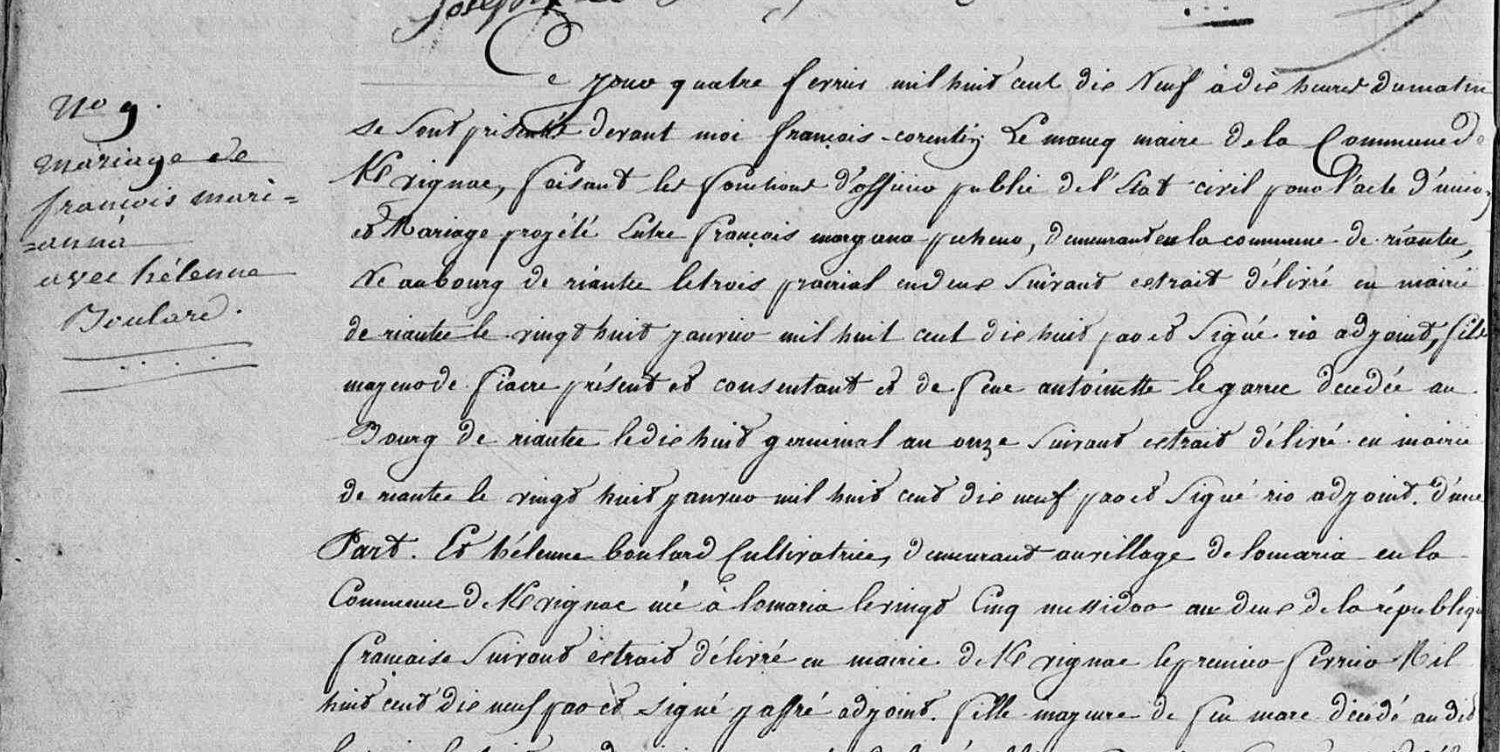 N.o 9.
mariage de
françois mari=
=anna
avec hélenne
Boulard.
Ce jour quatre fevrier mil huit cent dix Neuf à dix heures du matin
se sont présenté devant moi françois-corentin Le mancq maire de la Commune de
Kervignac, faisant les fonctions d'officier public de l'Etat civil pour l'acte d'union
et Mariage projété Entre françois pecheur, demeurant en la commune de riantec,
Né au bourg de riantec le trois prairial an deux suivant extrait délivré en mairie
de riantec le vingt huit janvier mil huit cent dix huit par et signé rio adjoint, fils
majeur de présent et consentant et de feue antoinette le garrec décedée au
Bourg de riantec le dix huit germinal an onze suivant extrait délivré en mairie
de riantec le vingt huit janvier mil huit cent dix neuf par et signé rio adjoint. d'une
Part. Et hélenne boulard Cultivatrice, demeurant au village de lomaria en la
Commune de Kervignac né à lomaria le vingt Cinq messidor an deux de la république
française suivant extrait délivré en mairie de Kervignac le premier fevrier Mil
huit cent dix neuf par et signé jaffré adjoint. fille majeure de feu marc décedé audit